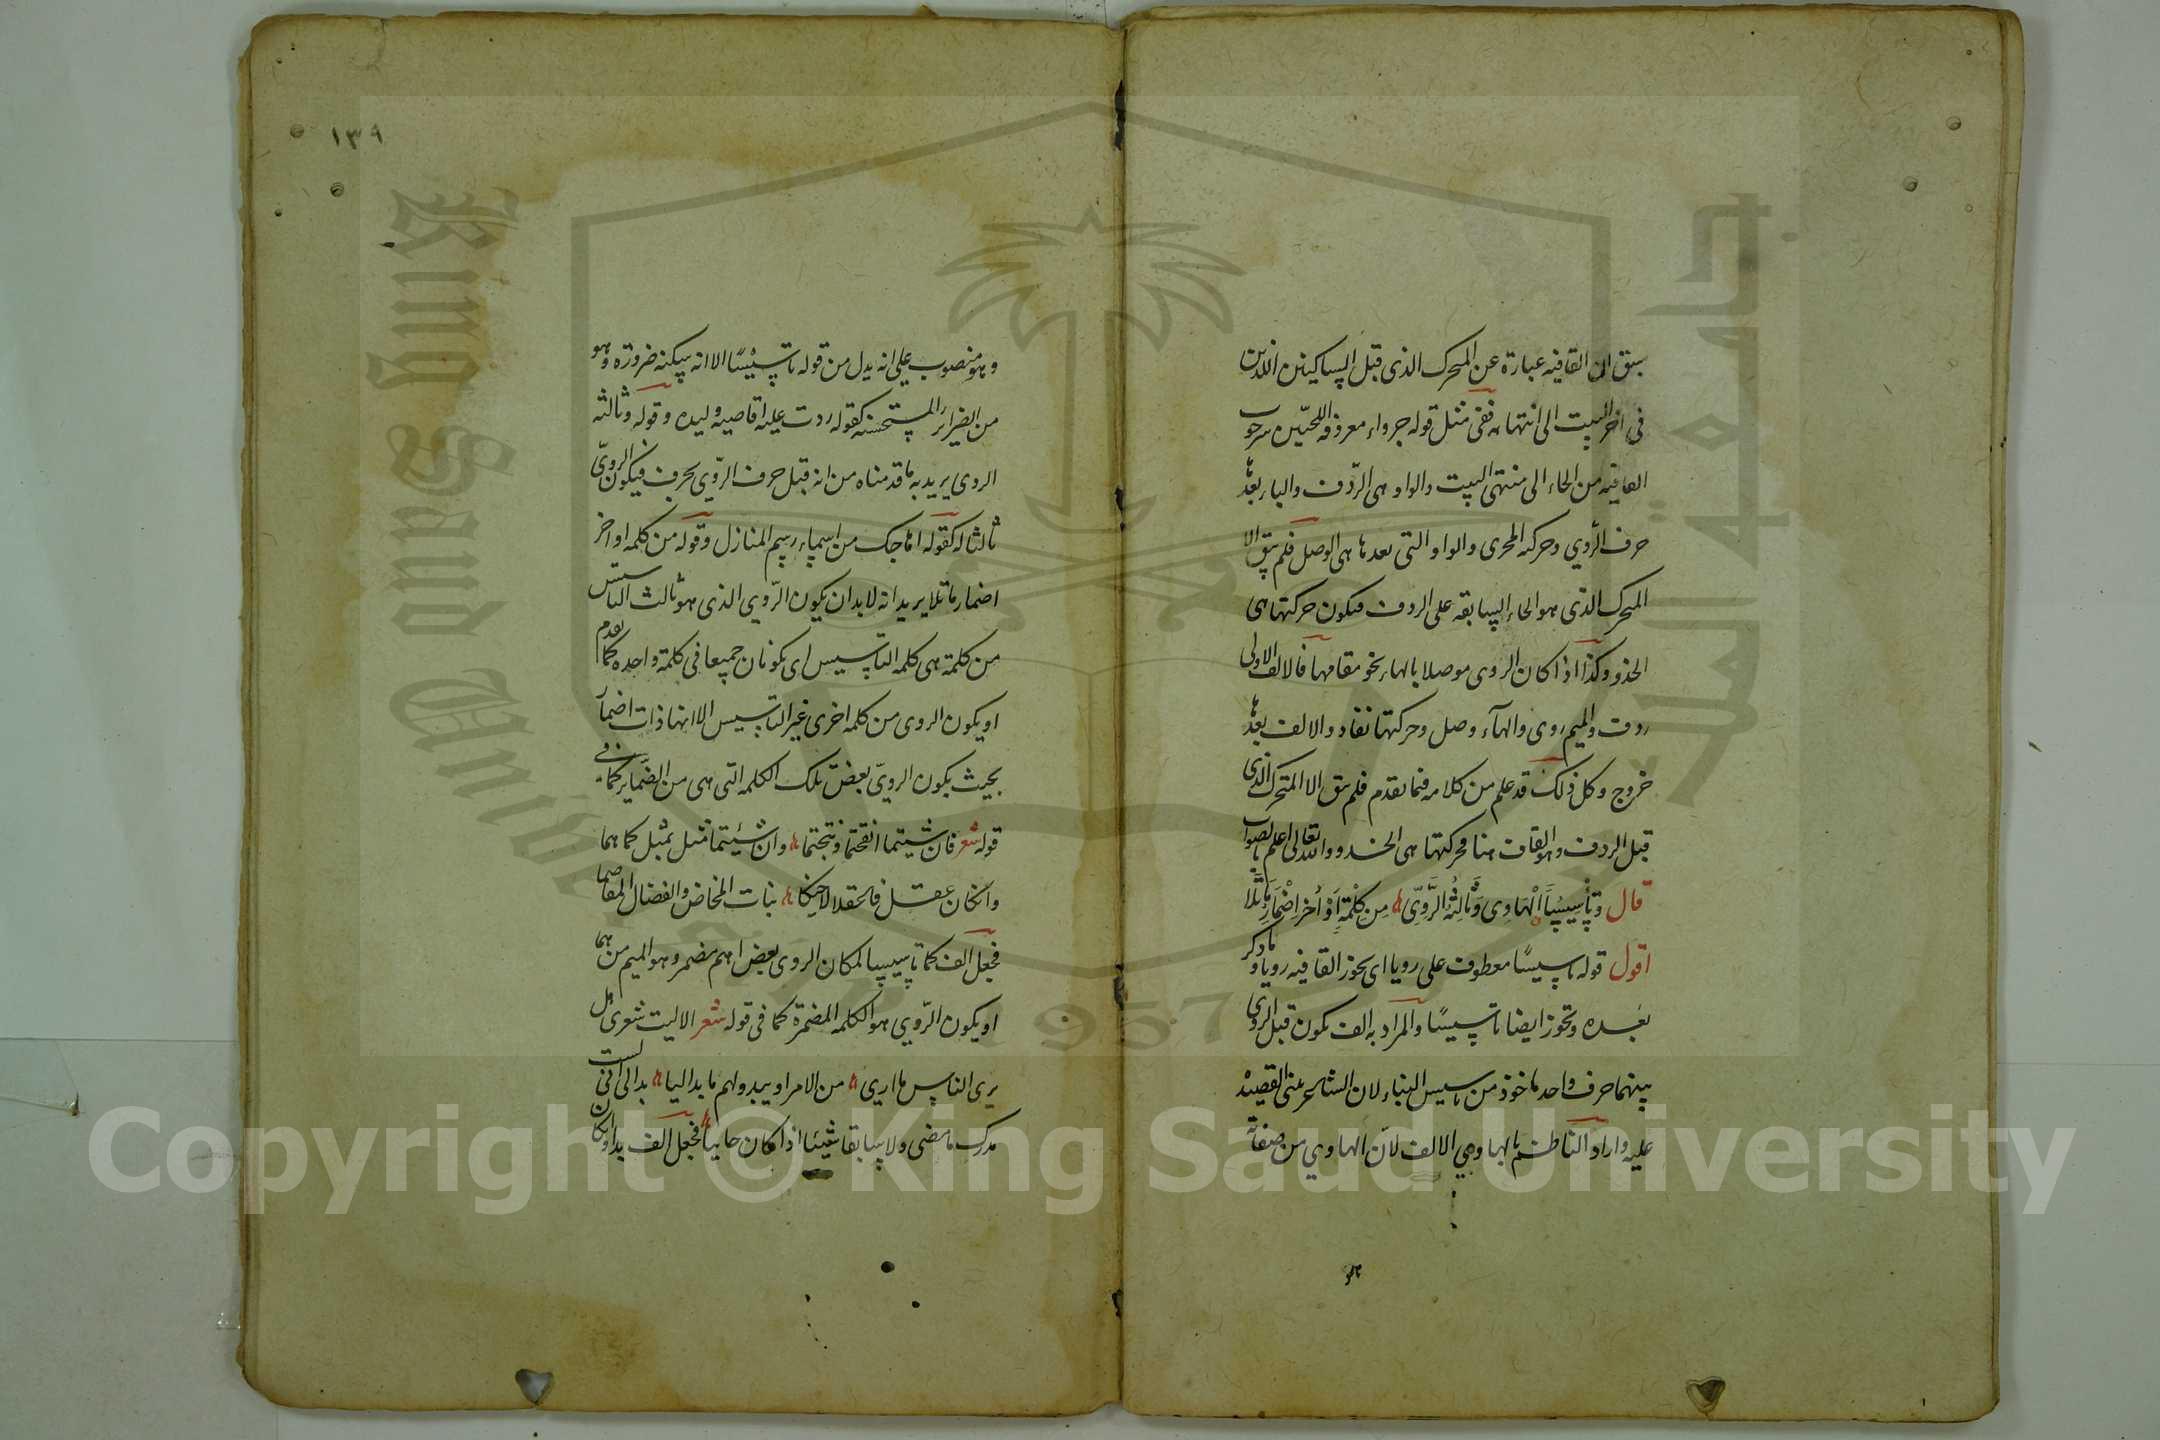 سبق ان القافيه عبارة عن المتحرك الذي قبل الساكنين اللذين
في اخر البيت الى انتهائه ففى مثل قوله جرواء معروقة اللحيين سرحوب
القافية من الحاء الى منتهى البيت والواو هي الردف والباء بعدها
حرف الروي وحركته المجرى والواو التي بعدها هى الوصل فلم يبق الا
المتحرك الذي هو الحاء السابقه على الردف فيكون حركتها هي
الحذو وكذا اذا كان الروى موصلا بالهاء نحو مقامها فالالف الاولى
ردف والميم روى والهاء وصل وحركتها نفاد والالف بعدها
خروج وكل ذلك قد علم من كلامه فيما تقدم فلم يبق الا المتحرك الذي
قبل الردف وهو القاف هنا فحركتها هى الحذو والله تعالى اعلم بالصواب
قال وتأسيسا الهاوي وثالثه الروي من كلمة أو اخر اضمار ما تلا
اقول قوله تاسيسا معطوف على رويا اى تحوز القافيه رويا وما ذكر
بعده وتحوز ايضا تاسيسا والمراد به الف تكون قبل الروي
بينهما حرف واحد ماخوذ من تاسيس البناء لان الشاعر بنى القصيد
عليه واراد الناظم بالهاوي الالف لان الهاوي من صفاته
١٣٩
وهو منصوب على انه بدل من قوله تاسيسا الا انه سكنه ضرورة وهو
من الضراير المستحسنه كقوله ردت عليه اقاصيه ولبده وقوله وثالثه
الروى يريد به ما قدمناه من انه قبل حرف الروي بحرف فيكون الروي
ثالثا له كقوله اهاجك من اسماء رسم المنازل وقوله من كلمه او اخر
اضمار ما تلا يريد انه لا بد ان يكون الروي الذى هو ثالث التاسيس
من كلمة هى كلمه التاسيس اى يكونان جميعا فى كلمة واحده كما تقدم
او يكون الروى من كلمه اخرى غير التاسيس الا انها ذات اضمار
بحيث يكون الروي بعض تلك الكلمه التى هى من الضماير كما فى
قوله شعر فان شيتما القحتما ونتجتما وان شيئتما مثل بمثل كما هما
وان كان عقل فاعقلا لاخيكما بنات المخاض والفصال المقاحما
فجعل الف كما تاسيسا لمكان الروى بعض اسم مضمر وهو الميم من هما
او يكون الروي هو الكلمه المضمرة كما فى قوله شعر الا ليت شعرى هل
يرى الناس ما ارى من الامر او يبدو لهم ما بدا ليا بدا لى انى لست
مدرك ما مضى ولا سابقا شيئا اذا كان جاييا فجعل الف بدا وكان
Copyright © King Saud University
King Saud University
جامعة الملك سعود
1957